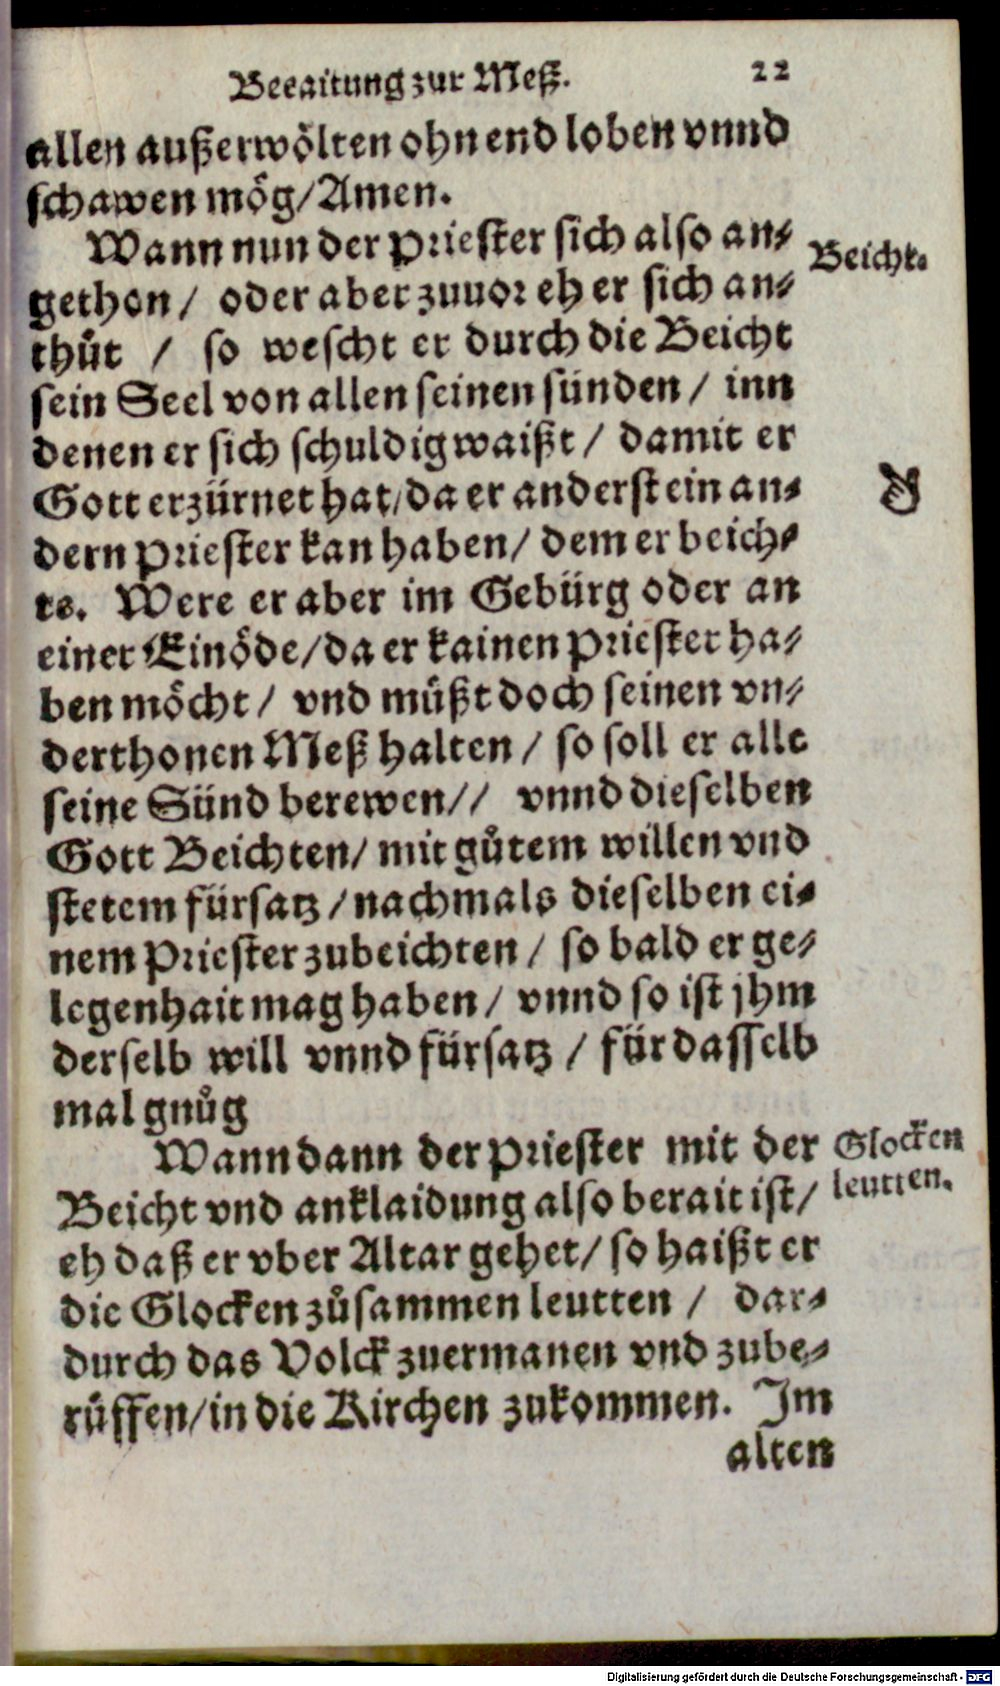 Beeaitung zur Meß. 22
allen außerwölten ohn end loben vnnd
schawen mög/Amen.
Wann nun der Priester sich also an⸗
Beicht.
gethon / oder aber zuuor eh er sich an⸗
thůt / so wescht er durch die Beicht
sein Seel von allen seinen sünden / inn
denen er sich schuldig waißt / damit er
Gott erzürnet hat/da er anderst ein an⸗
dern Priester kan haben/ dem er beich⸗
te. Were er aber im Gebürg oder an
einer Einöde/da er kainen Priester ha⸗
ben möcht / vnd müßt doch seinen vn⸗
derthonen Meß halten / so soll er alle
seine Sünd berewen// vnnd dieselben
Gott Beichten/ mit gůtem willen vnd
stetem fürsatz / nachmals dieselben ei⸗
nem Priester zubeichten / so bald er ge⸗
legenhait mag haben / vnnd so ist jhm
derselb will vnnd fürsatz / für dasselb
mal gnůg
Wann dann der Priester mit der
Glocken
leutten.
Beicht vnd anklaidung also berait ist/
eh daß er vber Altar gehet/ so haißt er
die Glocken zůsammen leutten / dar⸗
durch das Volck zuermanen vnd zube⸗
rüffen/in die Kirchen zukommen. Im
alten
Digitalisierung gefördert durch die Deutsche Forschungsgemeinschaft - DFG